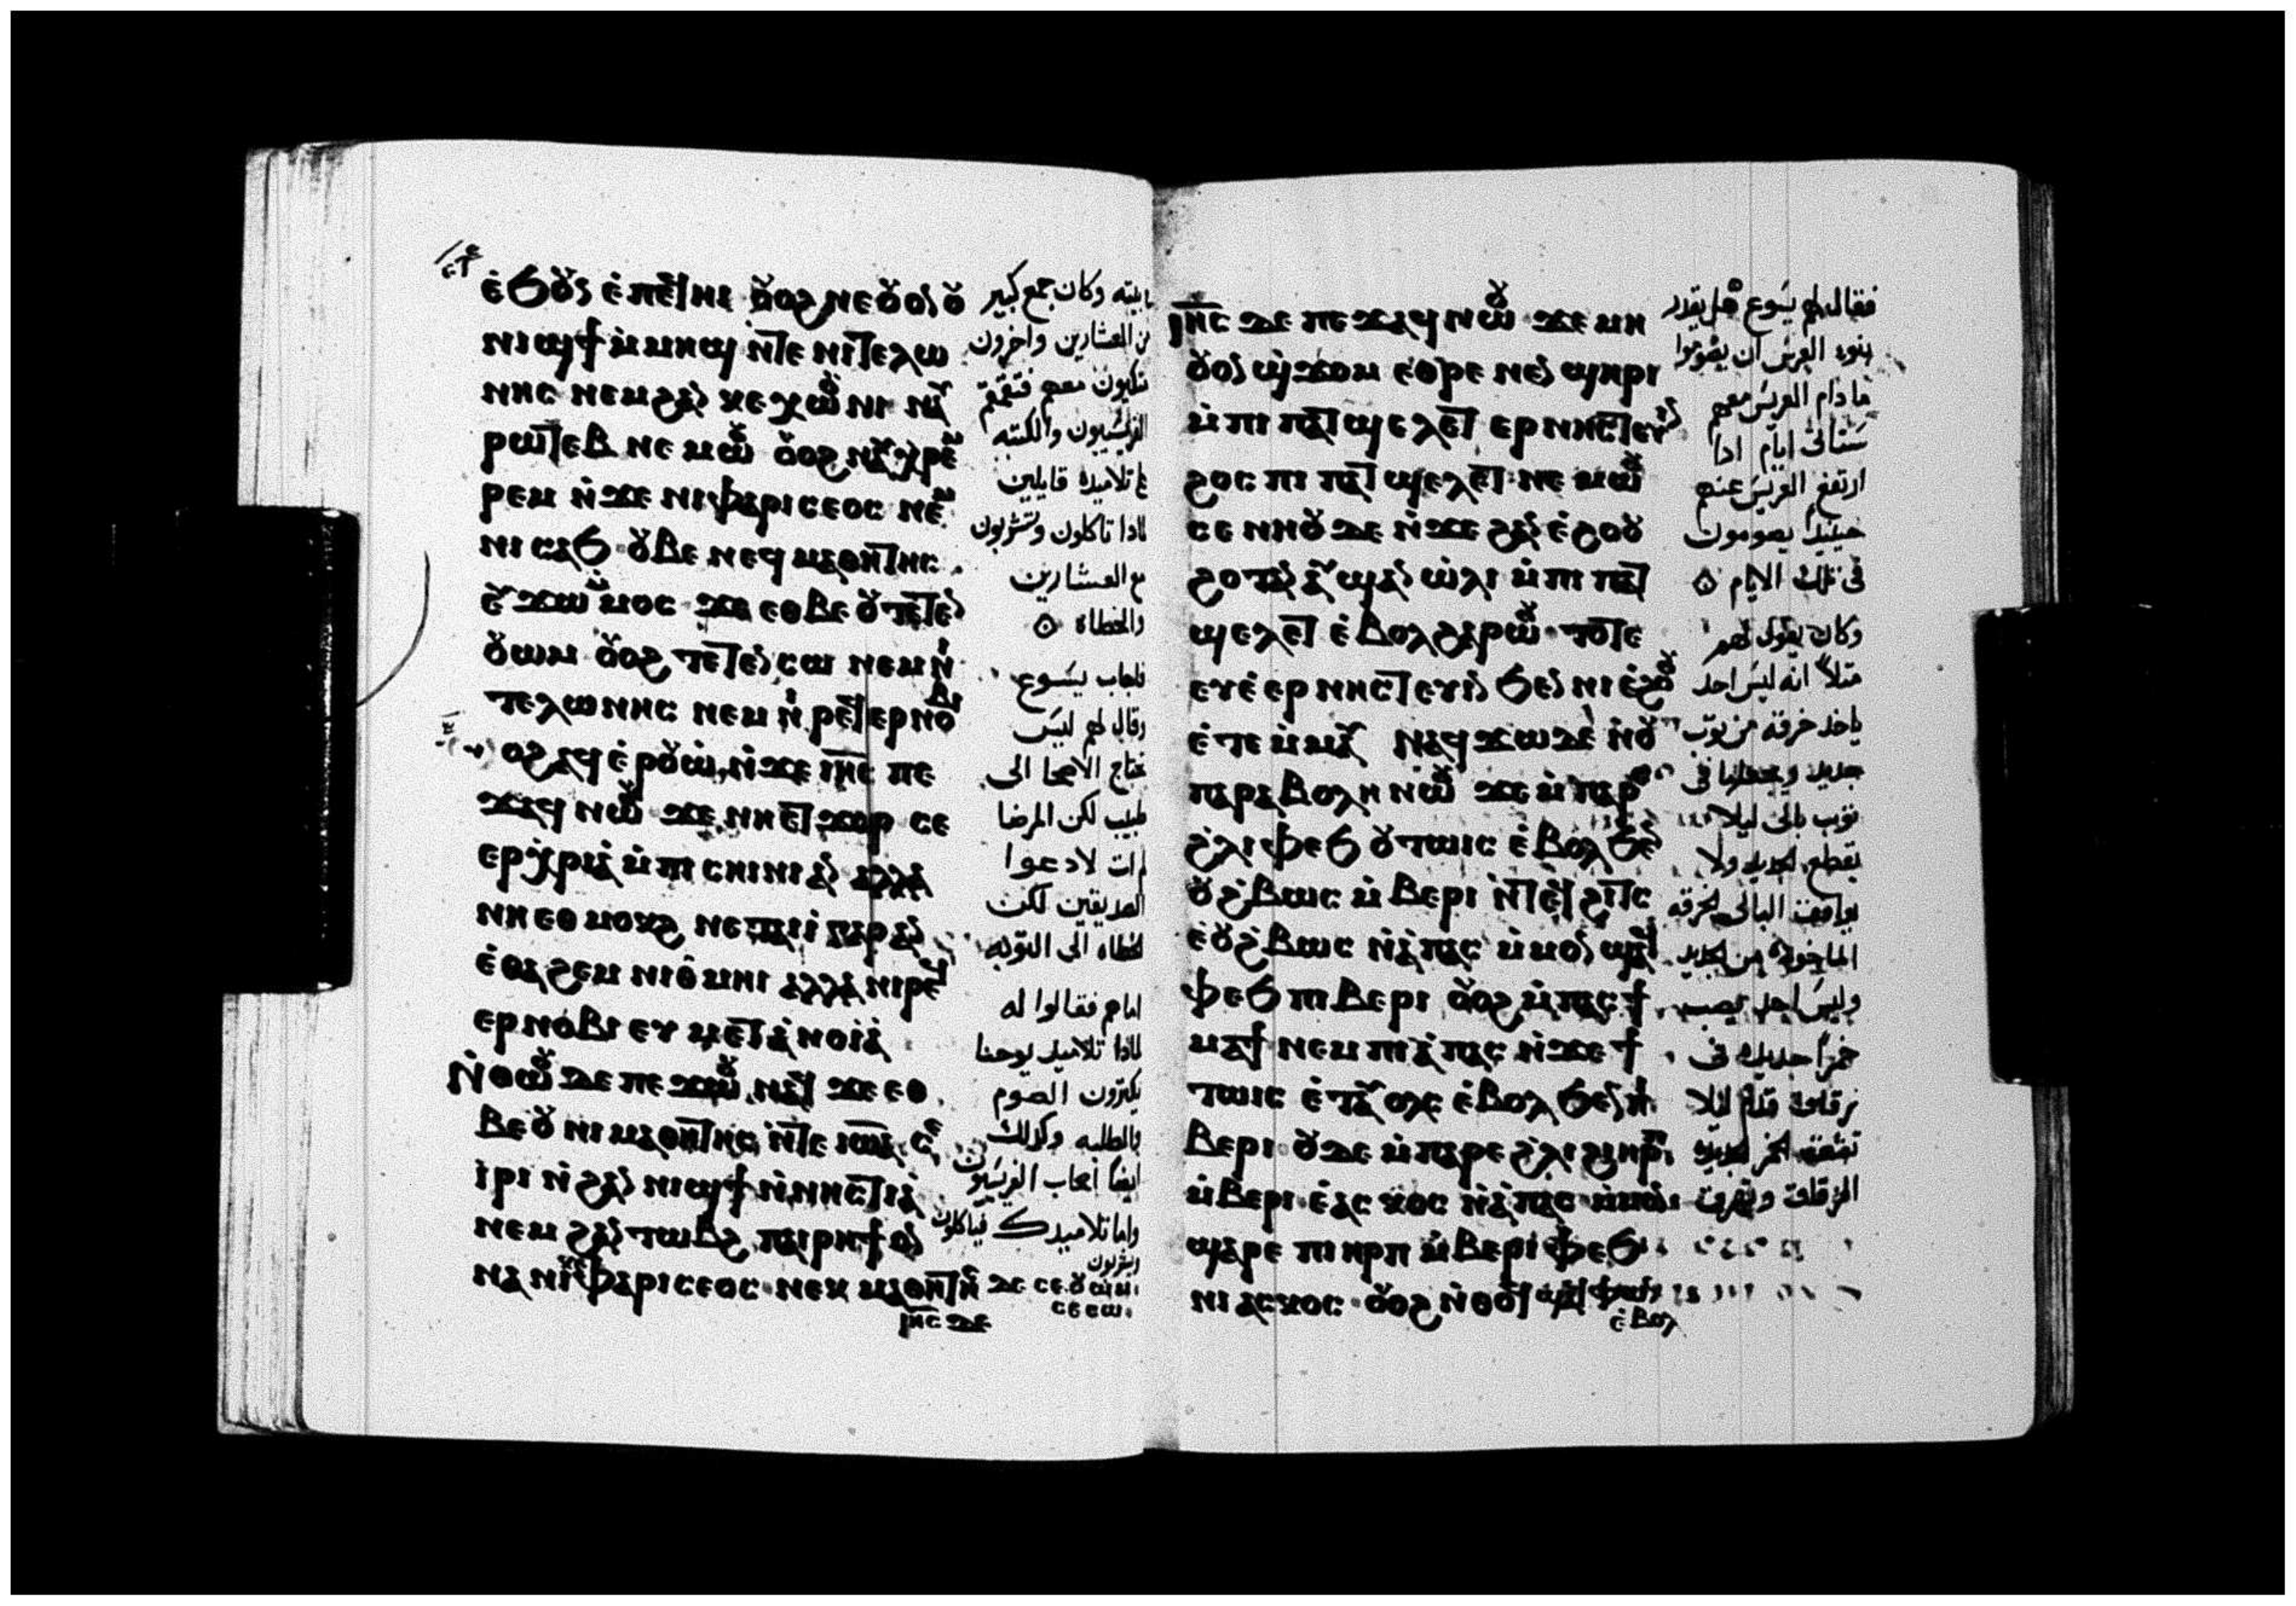 ⲉ̀ϧⲟⲩⲛ ⲉ̀ⲡⲉϥⲏⲓ ⲟⲩⲟϩ ⲛⲉⲟⲩⲟⲛ ⲟⲩ
ⲛⲓϣϯ ⲙ̀ⲙⲏϣ ⲛ̀ⲧⲉ ⲛⲓⲧⲉⲗⲱ
ⲛⲏⲥ ⲛⲉⲙ ϩⲁⲛ ⲕⲉⲭⲱⲟⲩⲛⲓ
ⲣⲱⲧⲉⲃ ⲛⲉⲙⲱⲟⲩ ⲟⲩⲟϩ
ⲣⲉⲙ ⲛ̀ϫⲉ ⲛⲓⲫⲁⲣⲓⲥⲉⲟⲥ ⲛⲉⲙ
ⲛⲓⲥⲁϧ ⲟⲩⲃⲉ ⲛⲉϥⲙⲁⲑⲏⲧⲏⲥ
ⲉⲩϫⲱⲙⲙⲟⲥ ϫⲉ ⲉⲑⲃⲉⲟⲩ ⲧⲉⲧⲉⲛ
ⲟⲩⲱⲙ ⲟⲩⲟϩ ⲧⲉⲧⲉⲛⲥⲱ ⲛⲉⲙ ⲛⲓ
ⲧⲉⲗⲱⲛⲏⲥ ⲛⲉⲙ ⲛⲓⲣⲉϥⲉⲣⲛⲟⲃⲓ
ⲟϩ ⲁϥⲉ̀ⲣⲟⲩⲱ̀ ⲛ̀ϫⲉ ⲓⲏⲥ ⲡⲉ
ϫⲁϥ ⲛⲱⲟⲩ ϫⲉ ⲛⲏⲉⲧϫⲟⲣ ⲥⲉ
ⲉⲣⲭ̀ⲣⲓⲁ̀ ⲙ̀ⲡⲓⲥⲏⲓⲛⲓ ⲁⲛ ⲁⲗⲗⲁ
ⲛⲏⲉⲑⲙⲟⲕϩ ⲛⲉⲧⲁⲓⲓ̀ ⲅⲁⲣ ⲁⲛ
ⲉ̀ⲑⲁϩⲉⲙ ⲛⲓⲑⲙⲏⲓ ⲁⲗⲗⲁ ⲛⲓⲣⲉϥ
ⲉⲣⲛⲟⲃⲓ ⲉⲩⲙⲉⲧⲁ̀ⲛⲟⲓⲁ̀
ⲛ̀ⲑⲱⲟⲩ ⲇⲉ ⲡⲉϫⲱⲟⲩ ⲛⲁϥ ϫⲉ ⲉⲑ
ⲃⲉⲟⲩ ⲛⲓⲙⲁⲑⲏⲧⲏⲥ ⲛ̀ⲧⲉ ⲓⲱⲁ ⲥⲉ
ⲓ̀ⲣⲓ ⲛ̀ϩⲁⲛⲛⲓϣϯ ⲛ̀ⲛⲏⲥⲧⲓⲁ̀
ⲛⲉⲙ ϩⲁⲛⲧⲱⲃϩ ⲡⲁⲓⲣⲏϯ ⲟⲛ
ⲛⲁ ⲛⲓⲫⲁⲣⲓⲥⲉⲟⲥ ⲛⲉⲕⲙⲁⲑⲏⲧⲏⲥ ⲇⲉ ⲥⲉⲟⲩⲱⲙ
ⲥⲉⲥⲱ
ⲓⲏⲥ ⲇⲉ
بيته وكان جمع كبير
من العشارين واخرون
متكيون معهم فتقمقم
الفريسيون والكتبه
على تلاميذه قايلين
لماذا تاكلون وتشربون
مع العشارين
والخطاه
فاجاب يسوع
وقال لهم ليس
تحتاج الاصحا الى
طبيب لكن المرضا
لم ات لادعوا
الصديقين لكن
الخطاه الى التوبه
امام فقالوا له
لماذا تلاميد يوحنا
يكثرون الصوم
والطلبه وكذلك
ايضا اصحاب الفريسيون
واما تلاميدك فياكلون
ويشربون
ⲓⲏⲥ ⲇⲉ ⲡⲉϫⲁϥ ⲛⲱⲟⲩ ϫⲉ ⲙⲏ
ⲟⲩⲟⲛ ϣ̀ϫⲟⲙ ⲉⲑⲣⲉ ⲛⲉⲛϣⲏⲣⲓ
ⲙ̀ⲡⲓⲡⲁⲧϣⲉⲗⲉⲧ ⲉⲣⲛⲏⲥⲧⲉⲩⲓⲛ
ϩⲟⲥ ⲡⲓⲡⲁⲧϣⲉⲗⲉⲧ ⲛⲉⲙⲱⲟⲩ
ⲥⲉⲛⲏⲟⲩ ⲇⲉ ⲛ̀ϫⲉ ϩⲁⲛⲉ̀ϩⲟⲟⲩ
ϩⲟⲧⲁⲛ ⲁⲩϣⲁⲛⲱ̀ⲗⲓ ⲙ̀ⲡⲓⲡⲁⲧ
ϣⲉⲗⲉⲧ ⲉ̀ⲃⲟⲗ ϩⲁⲣⲱⲟⲩ ⲧⲟⲧⲉ
ⲉⲩⲉ̀ⲉⲣⲛⲏⲥⲧⲉⲩⲓⲛ ϧⲉⲛ ⲛⲓⲉ̀ϩⲟⲟⲩ
ⲉ̀ⲧⲉⲙ̀ⲙⲁⲩ ⲛⲁϥϫⲱ ⲇⲉ ⲛ̀ⲟⲩ
ⲡⲁⲣⲁⲃⲟⲗⲏ ⲛⲱⲟⲩ ϫⲉ ⲙ̀ⲡⲁⲣⲉ
ϩ̀ⲗⲓ ⲫⲉϧ ⲟⲩⲧⲱⲓⲥ ⲉ̀ⲃⲟⲗ ϧⲉⲛ
ⲟⲩϩ̀ⲃⲱⲥ ⲙ̀ⲃⲉⲣⲓ ⲛ̀ⲧⲉϥϩⲓⲧⲥ
ⲉ̀ⲟⲩϩ̀ⲃⲱⲥ ⲛ̀ⲁ̀ⲡⲁⲥ ⲙ̀ⲙⲟⲛ ϣⲁϥ
ⲫⲉϧ ⲡⲓⲃⲉⲣⲓ ⲟⲩⲟϩ ⲙ̀ⲡⲁⲥϯ
ⲙⲁϯ ⲛⲉⲙ ⲡⲓⲁ̀ⲡⲁⲥ ⲛ̀ϫⲉ ϯ
ⲧⲱⲓⲥ ⲉ̀ⲧⲁⲩⲟⲗⲥ ⲉ̀ⲃⲟⲗ ϧⲉⲛ ⲡⲓ
ⲃⲉⲣⲓ ⲟⲩⲇⲉ ⲙ̀ⲡⲁⲣⲉ ϩ̀ⲗⲓ ϩⲓⲏⲣⲡ
ⲙ̀ⲃⲉⲣⲓ ⲉ̀ⲁⲥⲕⲟⲥ ⲛ̀ⲁ̀ⲡⲁⲥ ⲙ̀ⲙⲟⲛ
ϣⲁⲣⲉ ⲡⲓⲏⲣⲡ ⲙ̀ⲃⲉⲣⲓ ⲫⲉϧ
ⲛⲓⲁⲥⲕⲟⲥ ⲟⲩⲟϩ ⲛ̀ⲑⲟϥ ϣⲁϥⲫⲱⲛ
ⲉ̀ⲃⲟⲗ
فقال لهم يسوع هل يقدر
بنوا العرس ان يصوموا
ما دام العريس معهم
ستاتى ايام اذا
ارتفع العريس عنهم
حينيذ يصومون
فى تلك الايام
وكان يقول لهم
مثلا انه ليس احد
ياخذ خرقة من ثوب
جديد ويجعلها فى
ثوب بالى ليلا
يقطع الجديد ولا
يوافق البالى الخرقه
الماخوذة من الجديد
وليس احد يصب
خمرا جديدة فى
زقاق قدم ليلا
تشقق الخمر الجديد
الزقاق وتهرق